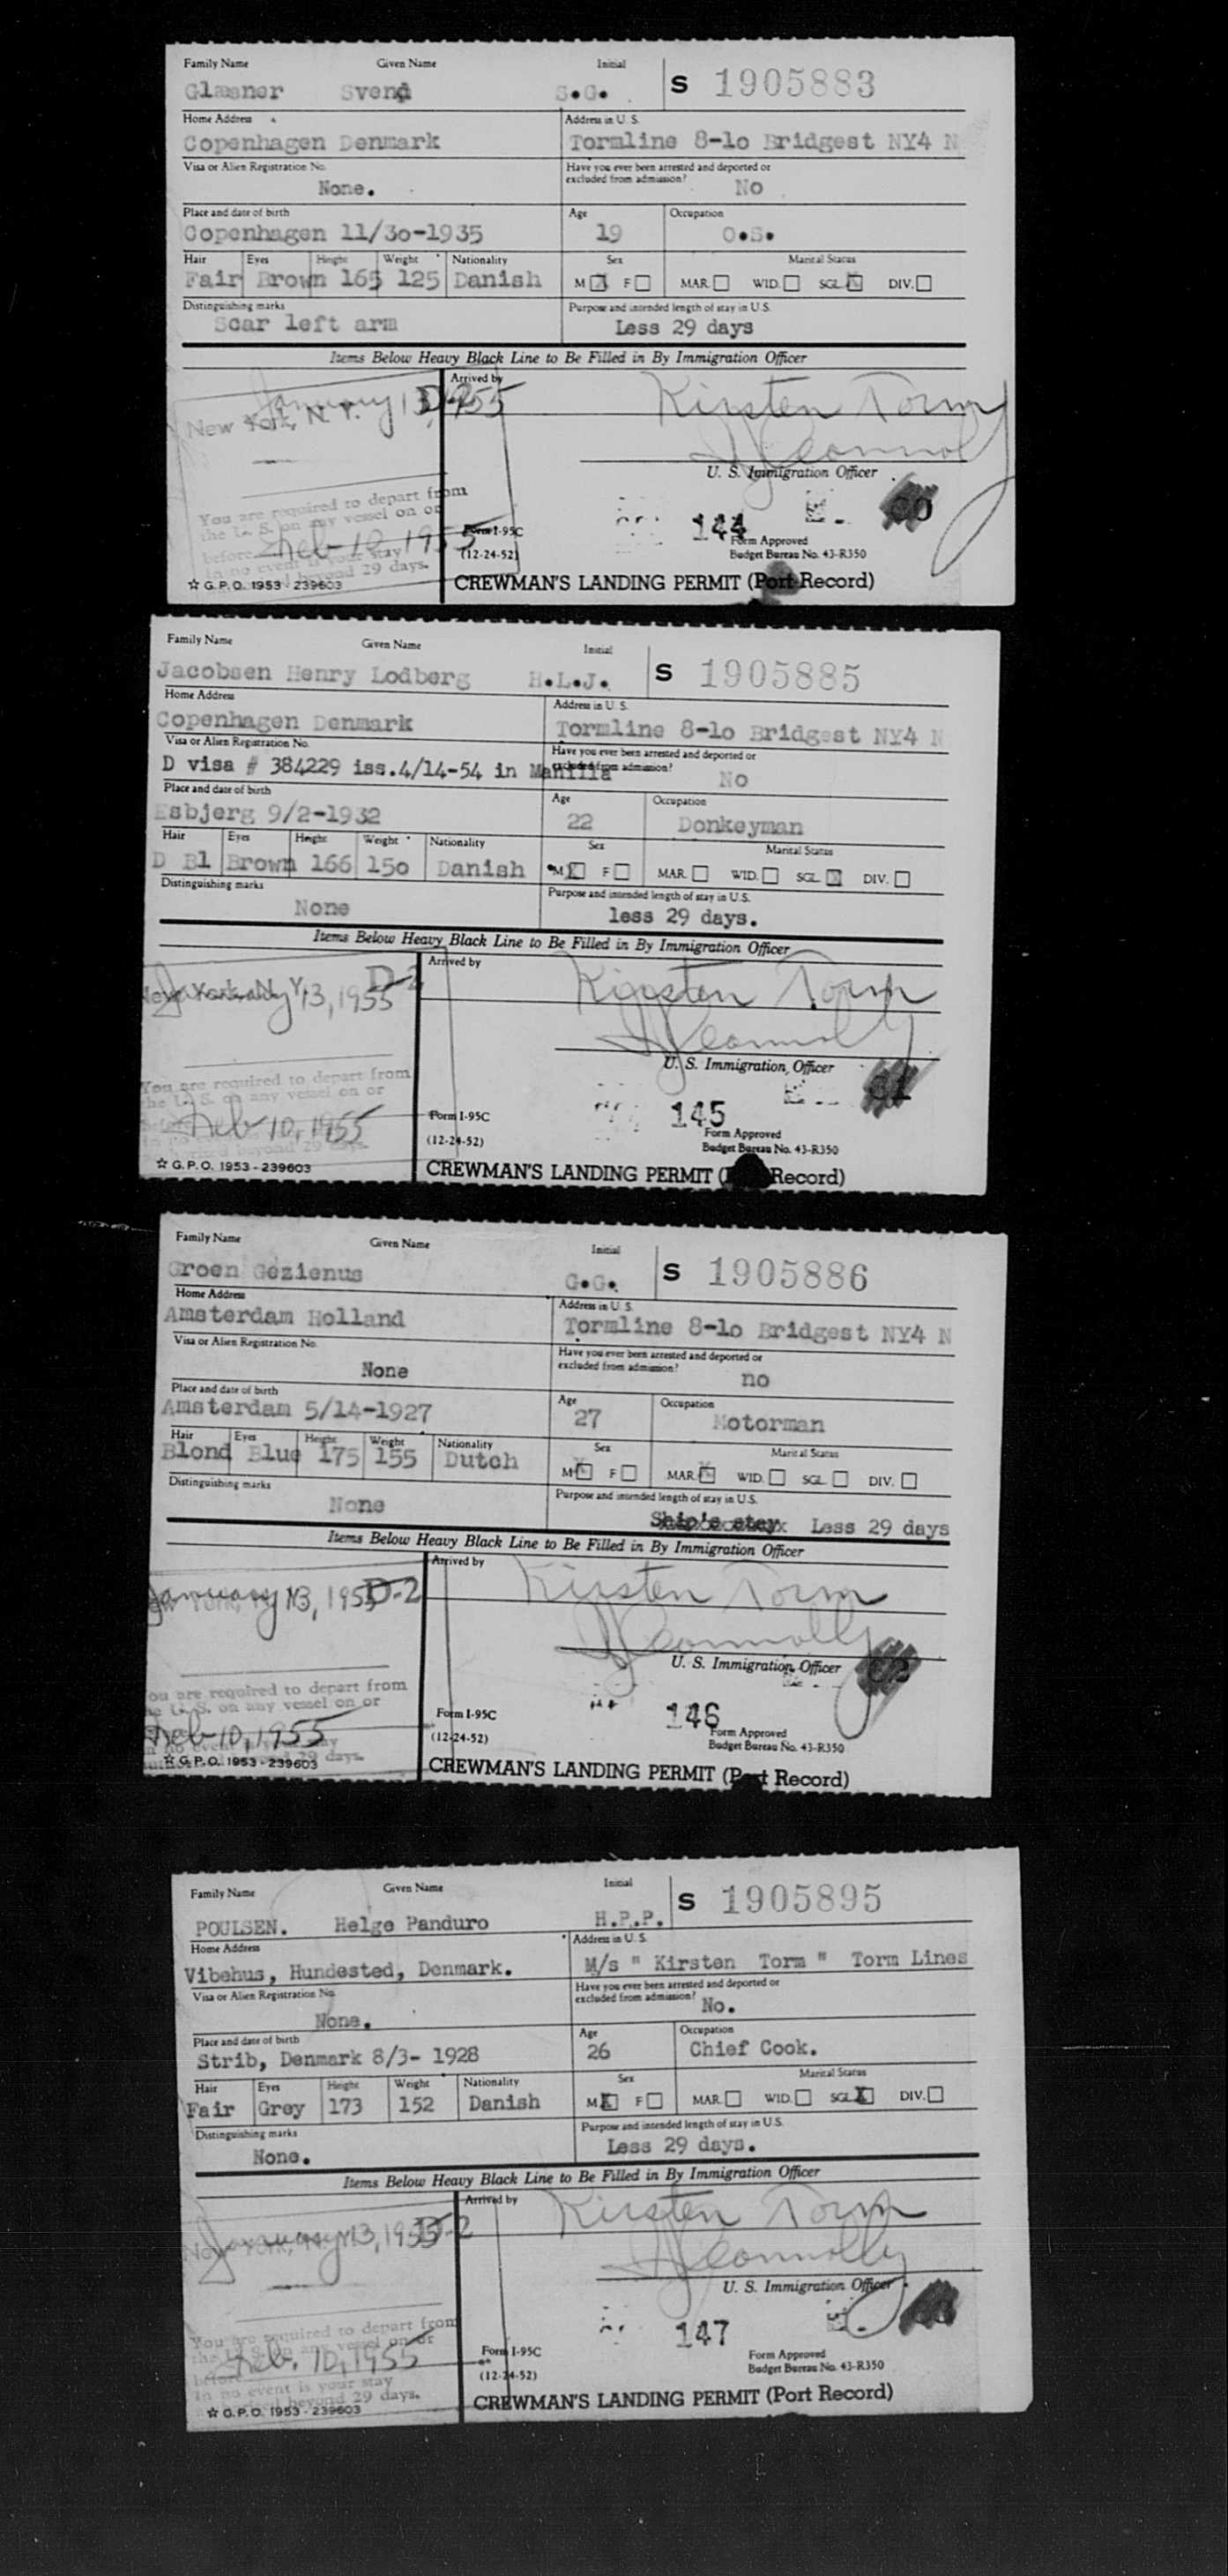 Family Name Given Name Initial
Glasner Svend S.G. S 1905883
Home Address Address in U. S.
Copenhagen Denmark Tormline 8-lo Bridgest NY4 N
Visa or Alien Registration No. Have you ever been arrested and deported or excluded from admission?
None. No
Place and date of birth Age Occupation
Copenhagen 11/3o-1935 19 O.S.
Hair Eyes Height Weight Nationality Sex Marital Status
Fair Brown 165 125 Danish M X F MAR. WID. SGL. X DIV.
Distinguishing marks Purpose and intended length of stay in U.S.
Scar left arm Less 29 days
Items Below Heavy Black Line to Be Filled in By Immigration Officer
Arrived by
January 13, 1955 D-2 Kirsten Torm
New York, N. Y.
Connolly
U. S. Immigration Officer
You are required to depart from
the U. S. on any vessel on or
before Feb 10, 1955
In no event is your stay
beyond 29 days.
Form I-95C
(12-24-52)
144
Form Approved
Budget Bureau No. 43-R350
☆ G.P.O. 1953 - 239603
CREWMAN'S LANDING PERMIT (Port Record)
Family Name Given Name Initial
Jacobsen Henry Lodberg H.L.J. S 1905885
Home Address Address in U. S.
Copenhagen Denmark Tormline 8-lo Bridgest NY4 N
Visa or Alien Registration No. Have you ever been arrested and deported or excluded from admission?
D visa # 384229 iss.4/14-54 in Manilla No
Place and date of birth Age Occupation
Esbjerg 9/2-1932 22 Donkeyman
Hair Eyes Height Weight Nationality Sex Marital Status
D Bl Brown 166 15o Danish M X F MAR. WID. SGL. X DIV.
Distinguishing marks Purpose and intended length of stay in U.S.
None less 29 days.
Items Below Heavy Black Line to Be Filled in By Immigration Officer
Arrived by
New York, N. Y. January 13, 1955 D-2 Kirsten Torm
Connolly
U. S. Immigration Officer
You are required to depart from
the U. S. on any vessel on or
Feb 10, 1955
beyond 29 days.
Form I-95C
(12-24-52)
145
Form Approved
Budget Bureau No. 43-R350
☆ G.P.O. 1953 - 239603
CREWMAN'S LANDING PERMIT ( Record)
Family Name Given Name Initial
Groen Gezienus G.G. S 1905886
Home Address Address in U. S.
Amsterdam Holland Tormline 8-lo Bridgest NY4 N
Visa or Alien Registration No. Have you ever been arrested and deported or excluded from admission?
None no
Place and date of birth Age Occupation
Amsterdam 5/14-1927 27 Motorman
Hair Eyes Height Weight Nationality Sex Marital Status
Blond Blue 175 155 Dutch M X F MAR. X WID. SGL. DIV.
Distinguishing marks Purpose and intended length of stay in U.S.
None Ship's stay Less 29 days
Items Below Heavy Black Line to Be Filled in By Immigration Officer
Arrived by
January 13, 1955 D-2 Kirsten Torm
Connolly
U. S. Immigration Officer
You are required to depart from
the U. S. on any vessel on or
Feb 10, 1955
29 days.
Form I-95C
(12-24-52)
146
Form Approved
Budget Bureau No. 43-R350
☆ G.P.O. 1953 - 239603
CREWMAN'S LANDING PERMIT (Port Record)
Family Name Given Name Initial
POULSEN. Helge Panduro H.P.P. S 1905895
Home Address Address in U. S.
Vibehus, Hundested, Denmark. M/s " Kirsten Torm " Torm Lines
Visa or Alien Registration No. Have you ever been arrested and deported or excluded from admission?
None. No.
Place and date of birth Age Occupation
Strib, Denmark 8/3- 1928 26 Chief Cook.
Hair Eyes Height Weight Nationality Sex Marital Status
Fair Grey 173 152 Danish M X F MAR. WID. SGL. X DIV.
Distinguishing marks Purpose and intended length of stay in U.S.
None. Less 29 days.
Items Below Heavy Black Line to Be Filled in By Immigration Officer
Arrived by
New York, N. Y. January 13, 1955 D-2 Kirsten Torm
Connolly
U. S. Immigration Officer
You are required to depart from
the U. S. on any vessel on or
before Feb. 10, 1955
In no event is your stay
beyond 29 days.
Form I-95C
(12-24-52)
147
Form Approved
Budget Bureau No. 43-R350
☆ G.P.O. 1953 - 239603
CREWMAN'S LANDING PERMIT (Port Record)